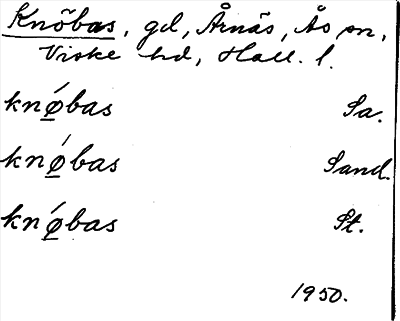 Knöbas, gd, Årnäs, Ås sn,
Viske hd, Hall. l.
knǿbas Sa.
knǿbas Sand.
knǿbas St.
1950.